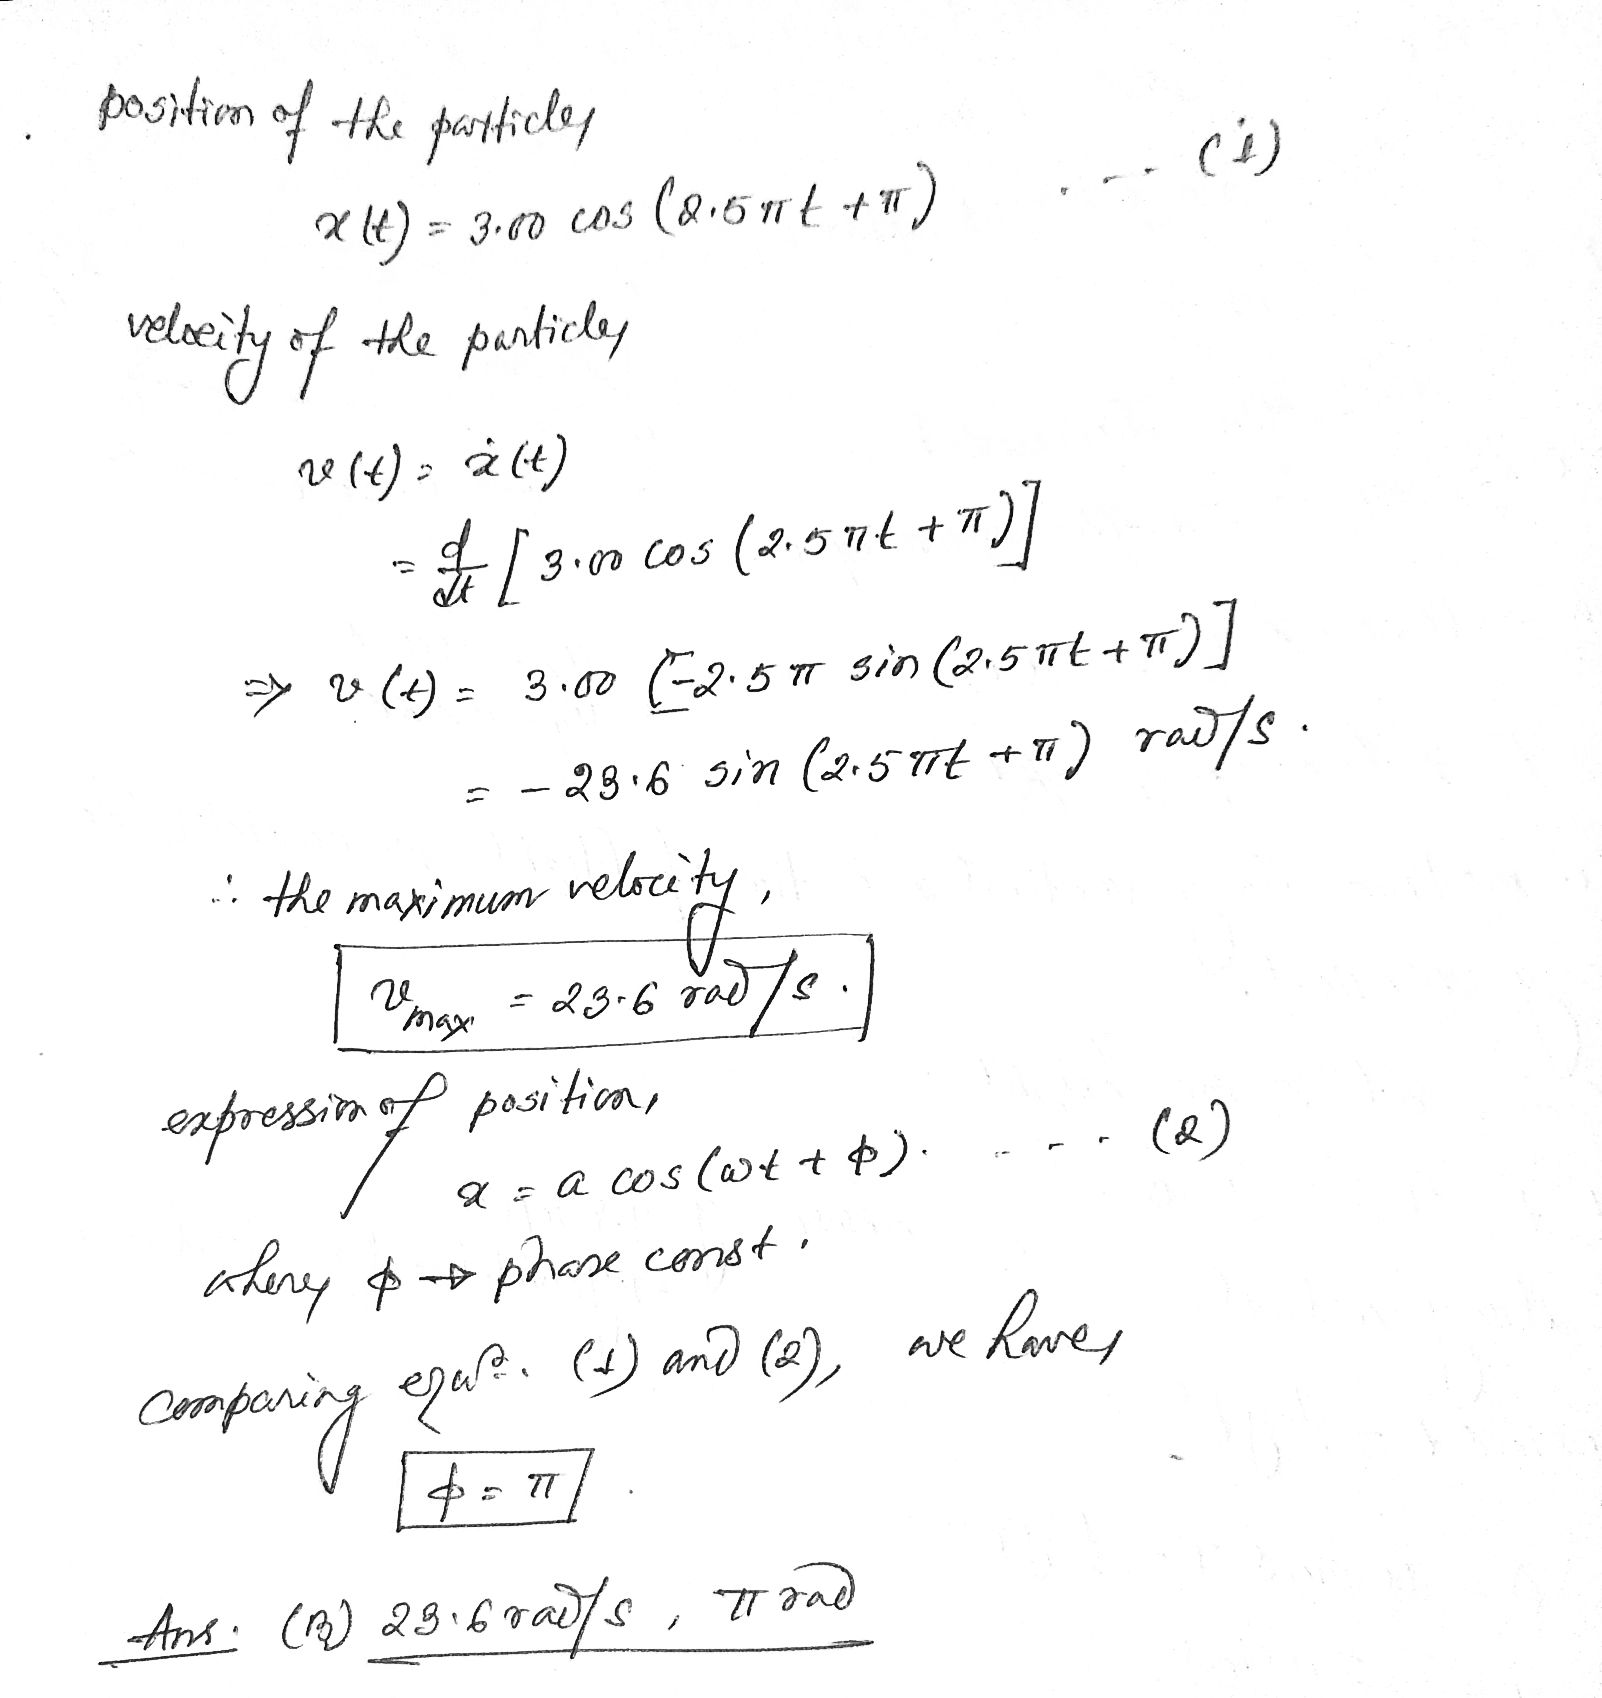 position of the particle,
x(t) = 3.00 cos (2.5πt + π) ... (1)
velocity of the particle,
v(t) = ẋ(t)
= d/dt [3.00 cos (2.5πt + π)]
⇒ v(t) = 3.00 [-2.5π sin (2.5πt + π)]
= - 23.6 sin (2.5πt + π) rad/s.
∴ the maximum velocity,
v_max = 23.6 rad/s.
expression of position,
x = a cos (ωt + φ). ... (2)
where, φ → phase const.
comparing equⁿ. (1) and (2), we have,
φ = π
Ans. (B) 23.6 rad/s, π rad